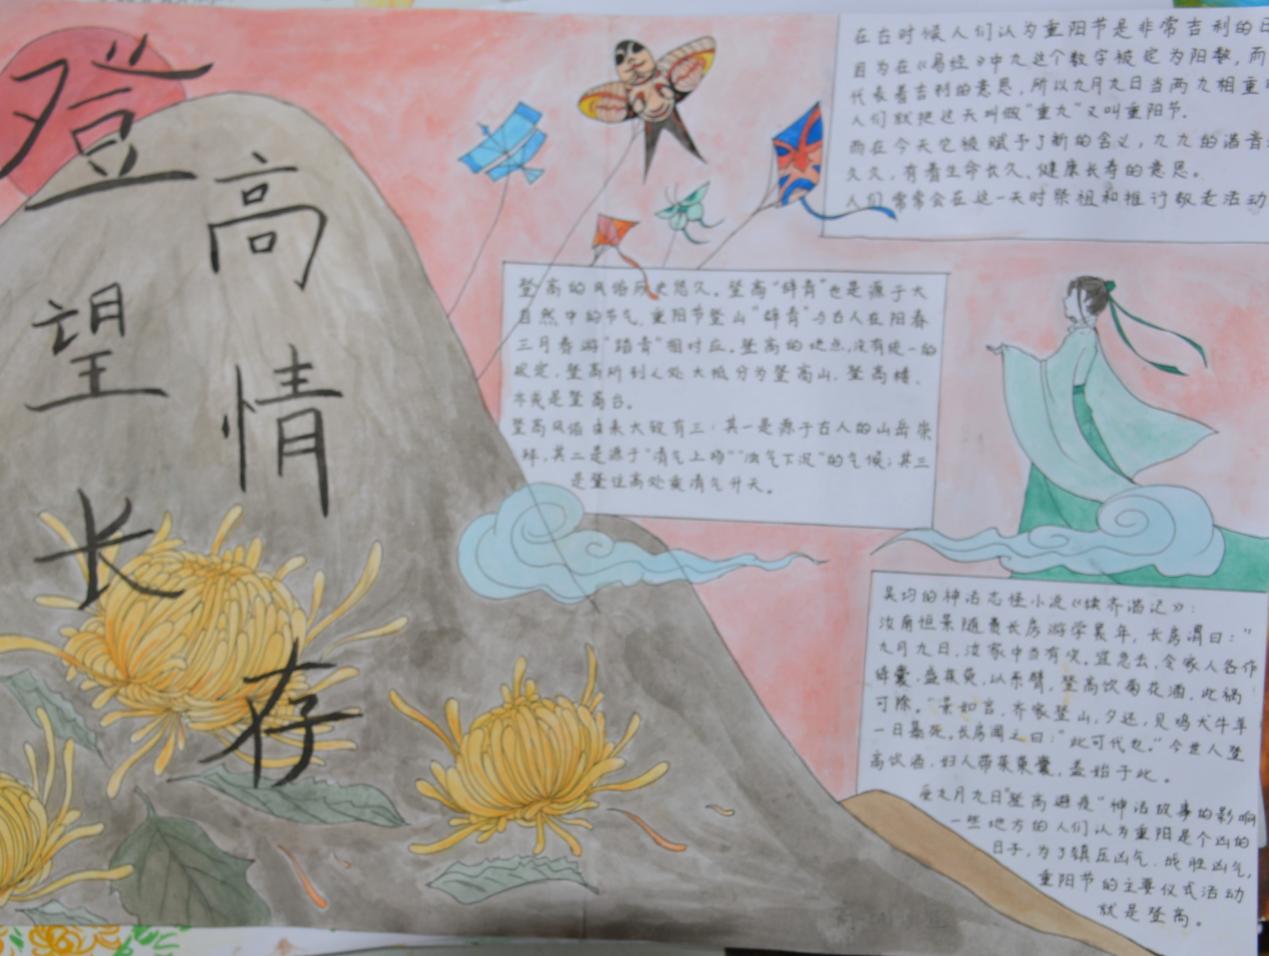 登高望情长存
在古时候人们认为重阳节是非常吉利的日
因为在《易经》中九这个数字被定为阳数，而
代表着吉利的意思，所以九月九日当两九相重
人们就把这天叫做“重九”又叫重阳节.
而在今天它被赋予了新的含义，九九的谐音
久久，有着生命长久、健康长寿的意思。
人们常常会在这一天时祭祖和推行敬老活动
登高的风俗历史悠久。登高“辞青”也是源于大
自然中的节气，重阳节登山“辞青”与古人在阳春
三月春游“踏青”相对应。登高的地点，没有统一的
规定，登高所到之处大抵分为登高山，登高楼、
亦或是登高台。
登高风俗由来大致有三：其一是源于古人的山岳崇
拜，其二是源于“清气上扬”“浊气下沉”的气候；其三
是登住高处乘清气升天。
吴均的神话志怪小说《续齐谐记》：
汝南恒景随费长房游学累年，长房谓曰：“
九月九日，汝家中当有灾。宜急去，令家人各作
绛囊，盛茱萸，以系臂，登高饮菊花酒，此祸
可除。景如言，齐家登山，夕还，见鸡犬牛羊
一日暴死。长房闻之曰：“此可代也。”今世人登
高饮酒，妇人带茱萸囊，盖始于此。
受九月九日“登高避疫”神话故事的影响
一些地方的人们认为重阳是个凶的
日子，为了镇压凶气，战胜凶气，
重阳节的主要仪式活动
就是登高。